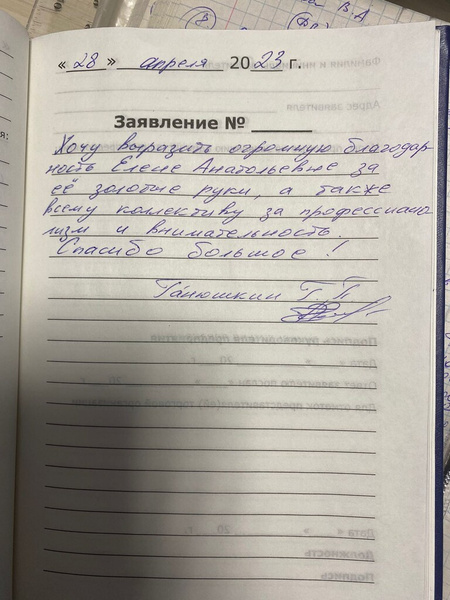 « 28 » апреля 20 23 г.
Заявление №
Хочу выразить огромную благодар-
ность Елене Анатольевне за
её золотые руки, а также
всему коллективу за профессиона
лизм и внимательность.
Спасибо большое!
Ганюшкин Г. П